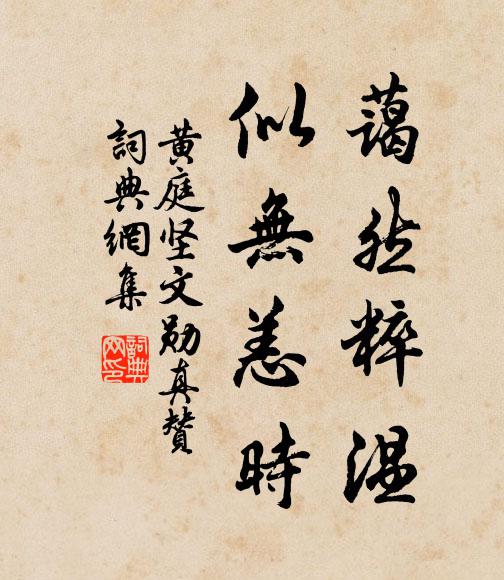 藹然粹温
似無恙時
黄庭坚文勛真贊
詞典網集
詞典網印